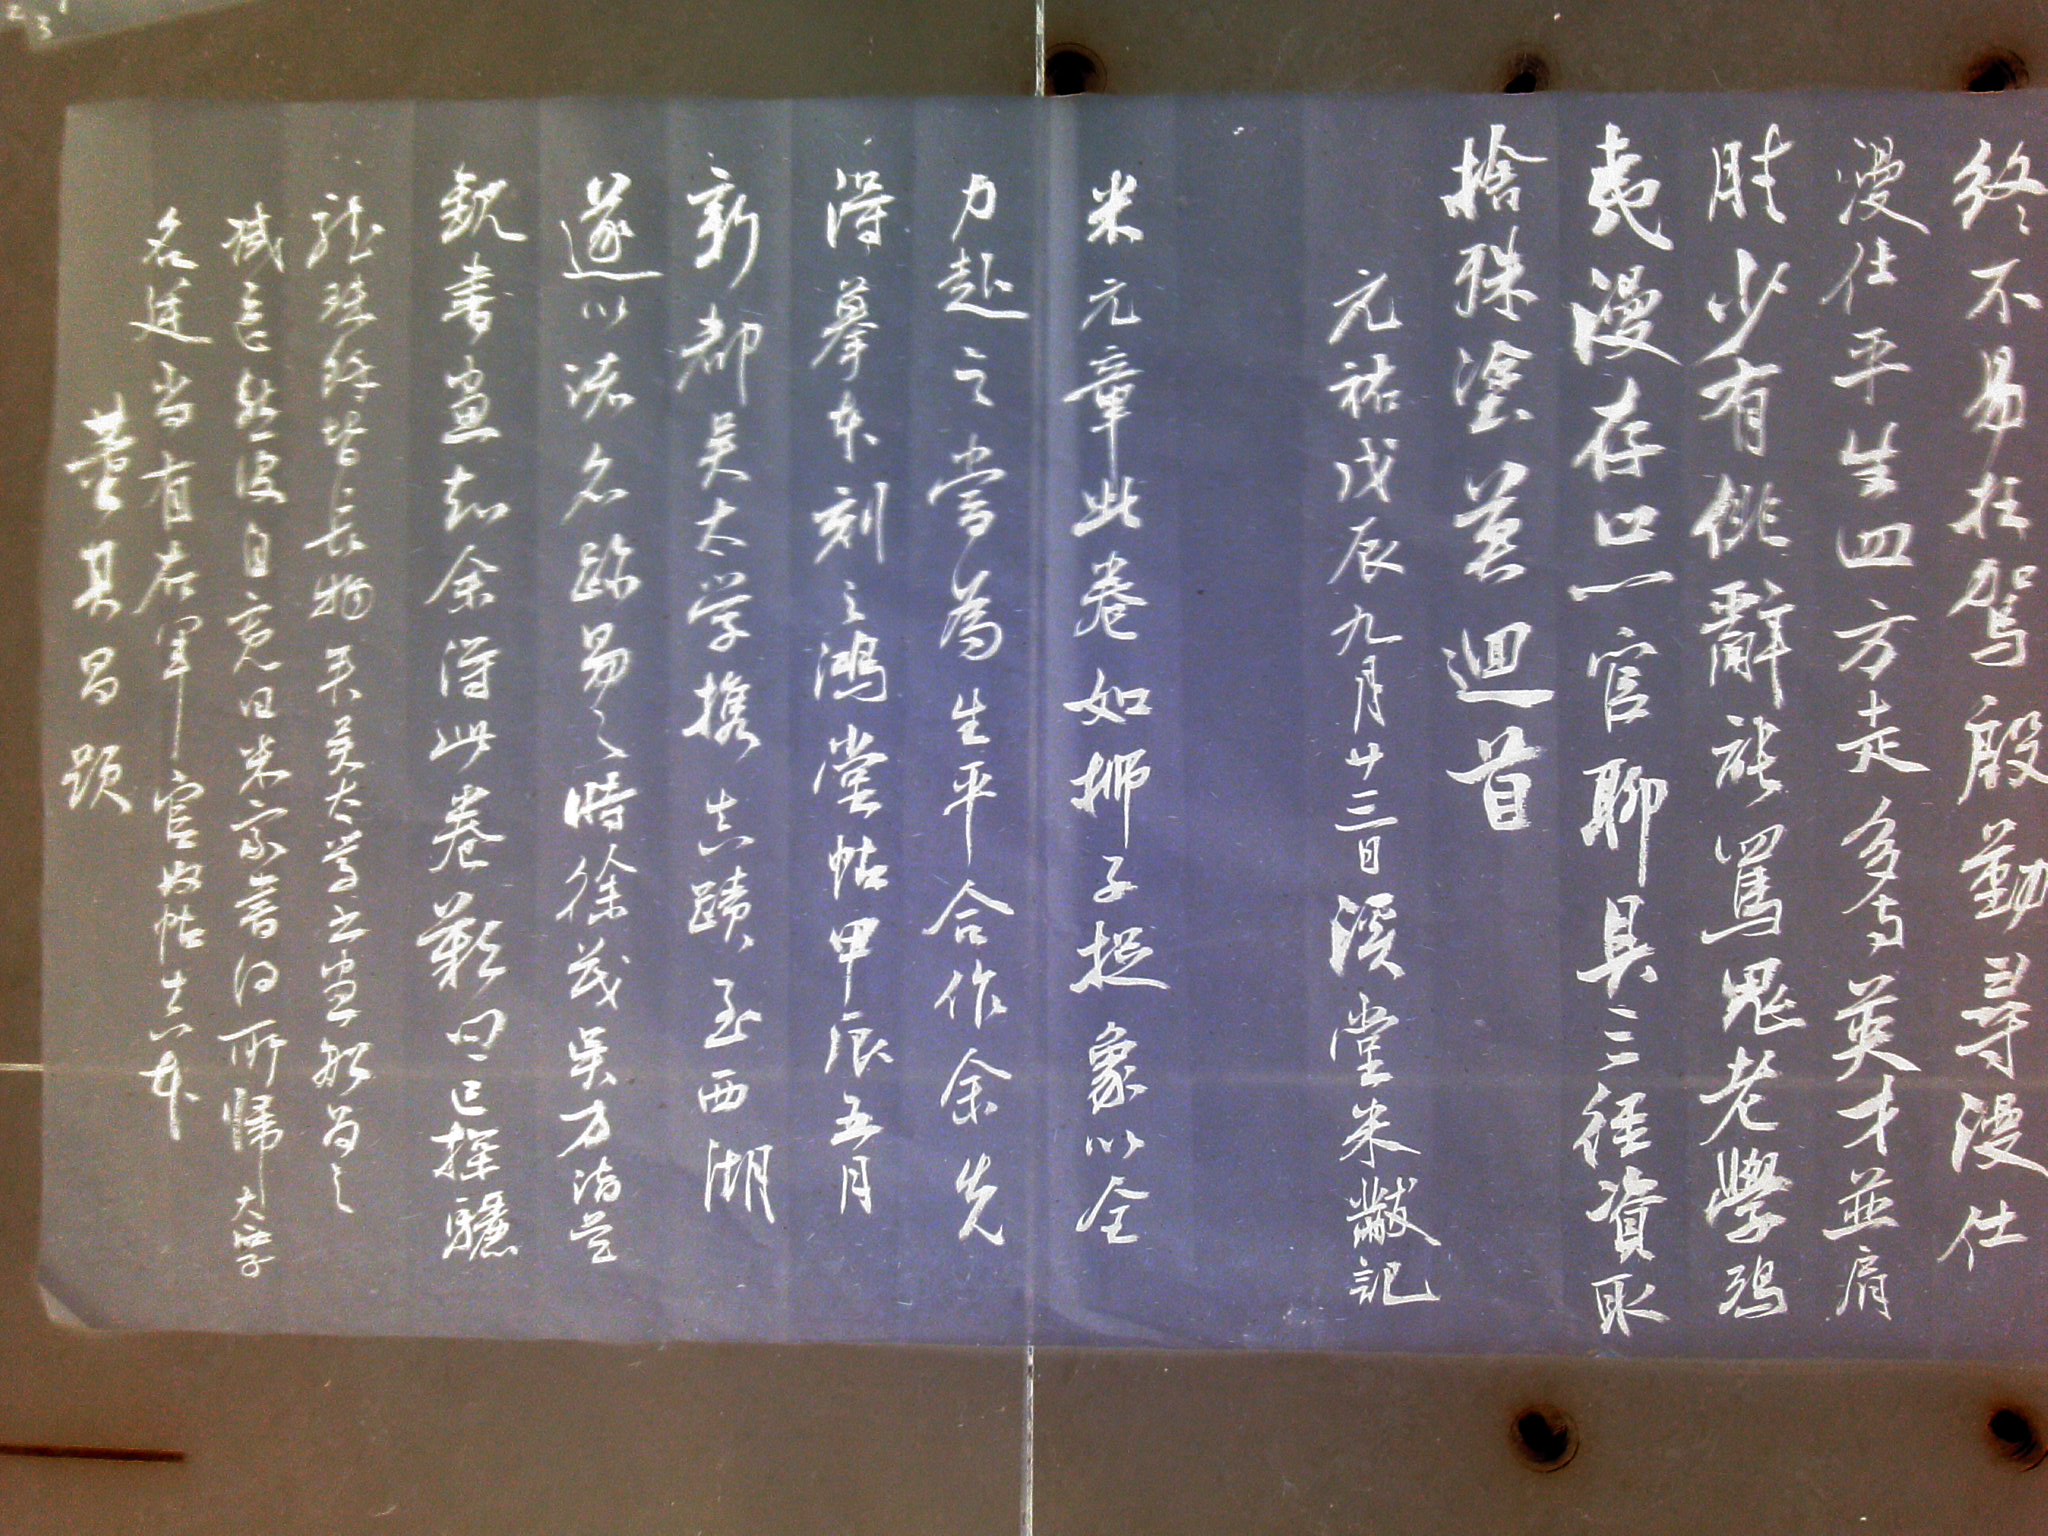 終不易枉駕殷勤尋漫仕
漫仕平生四方走多与英才並肩
肘少有俳辭能罵鬼老學鴟
夷漫存口一官聊具三徑資取
捨殊塗莫迴首
元祐戊辰九月廿三日溪堂米黻記
米元章此卷如狮子捉象以全
力赴之當為生平合作余先
得摹本刻之鴻堂帖甲辰五月
新都吴太学携真蹟至西湖
遂以诸名跡易之時徐茂吴方詣吴
觀書畫知余得此卷歎曰已探驪
龍珠餘皆長物矣吴太学書畫船為之
減色然復自寬曰米家書得所歸太学
名廷尚有右軍官奴帖真本
董其昌題